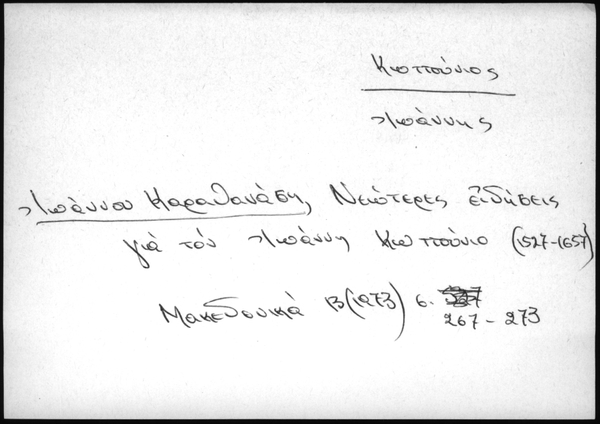 Κωττούνιος
Ἰωάννης
Ἰωάννου Καραθανάση, Νεώτερες εἰδήσεις
γιὰ τὸν Ἰωάννη Κωττούνιο (1527-1657)
Μακεδονικὰ 13 (1973) σ.
267 - 273